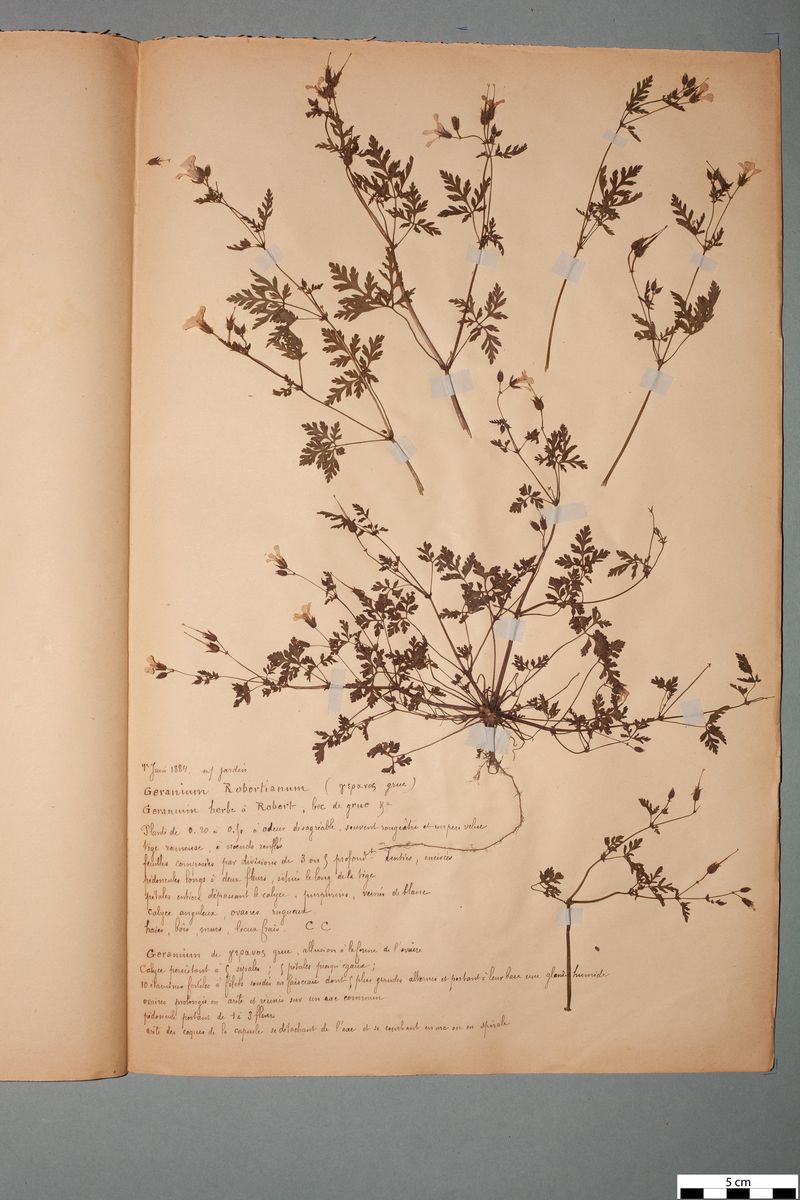 Juin 1884. jardin
Geranium Robertianum (γερανος grue)
Geranium herbe à Robert, bec de grue
Plante de 0.20 à 0.50 à odeur désagréable, souvent rougeâtre et un peu velue
tige rameuse, à nœuds renflés
feuilles composées par divisions de 3 ou 5 profondt dentées, incisées
pédoncules longs à deux fleurs, le long de la tige
pétales entiers dépassant le calyce, purpurins, veinés de blanc
calyce anguleux, ovaires rugueux
haies, bois, murs, lieux frais. C C
Geranium de γερανος grue, allusion à la forme de l'ovaire
Calyce persistant à 5 sépales ; 5 pétales presqu'égaux ;
10 étamines fertiles à filets soudés en faisceau dont 5 plus grandes alternes et portant à leur base une glande humide
ovaires prolongés en arête et réunis sur un axe commun
pédoncule portant de 1 à 3 fleurs
arête des coques de la capsule se détachant de l'axe et se courbant en arc ou en spirale
5 cm